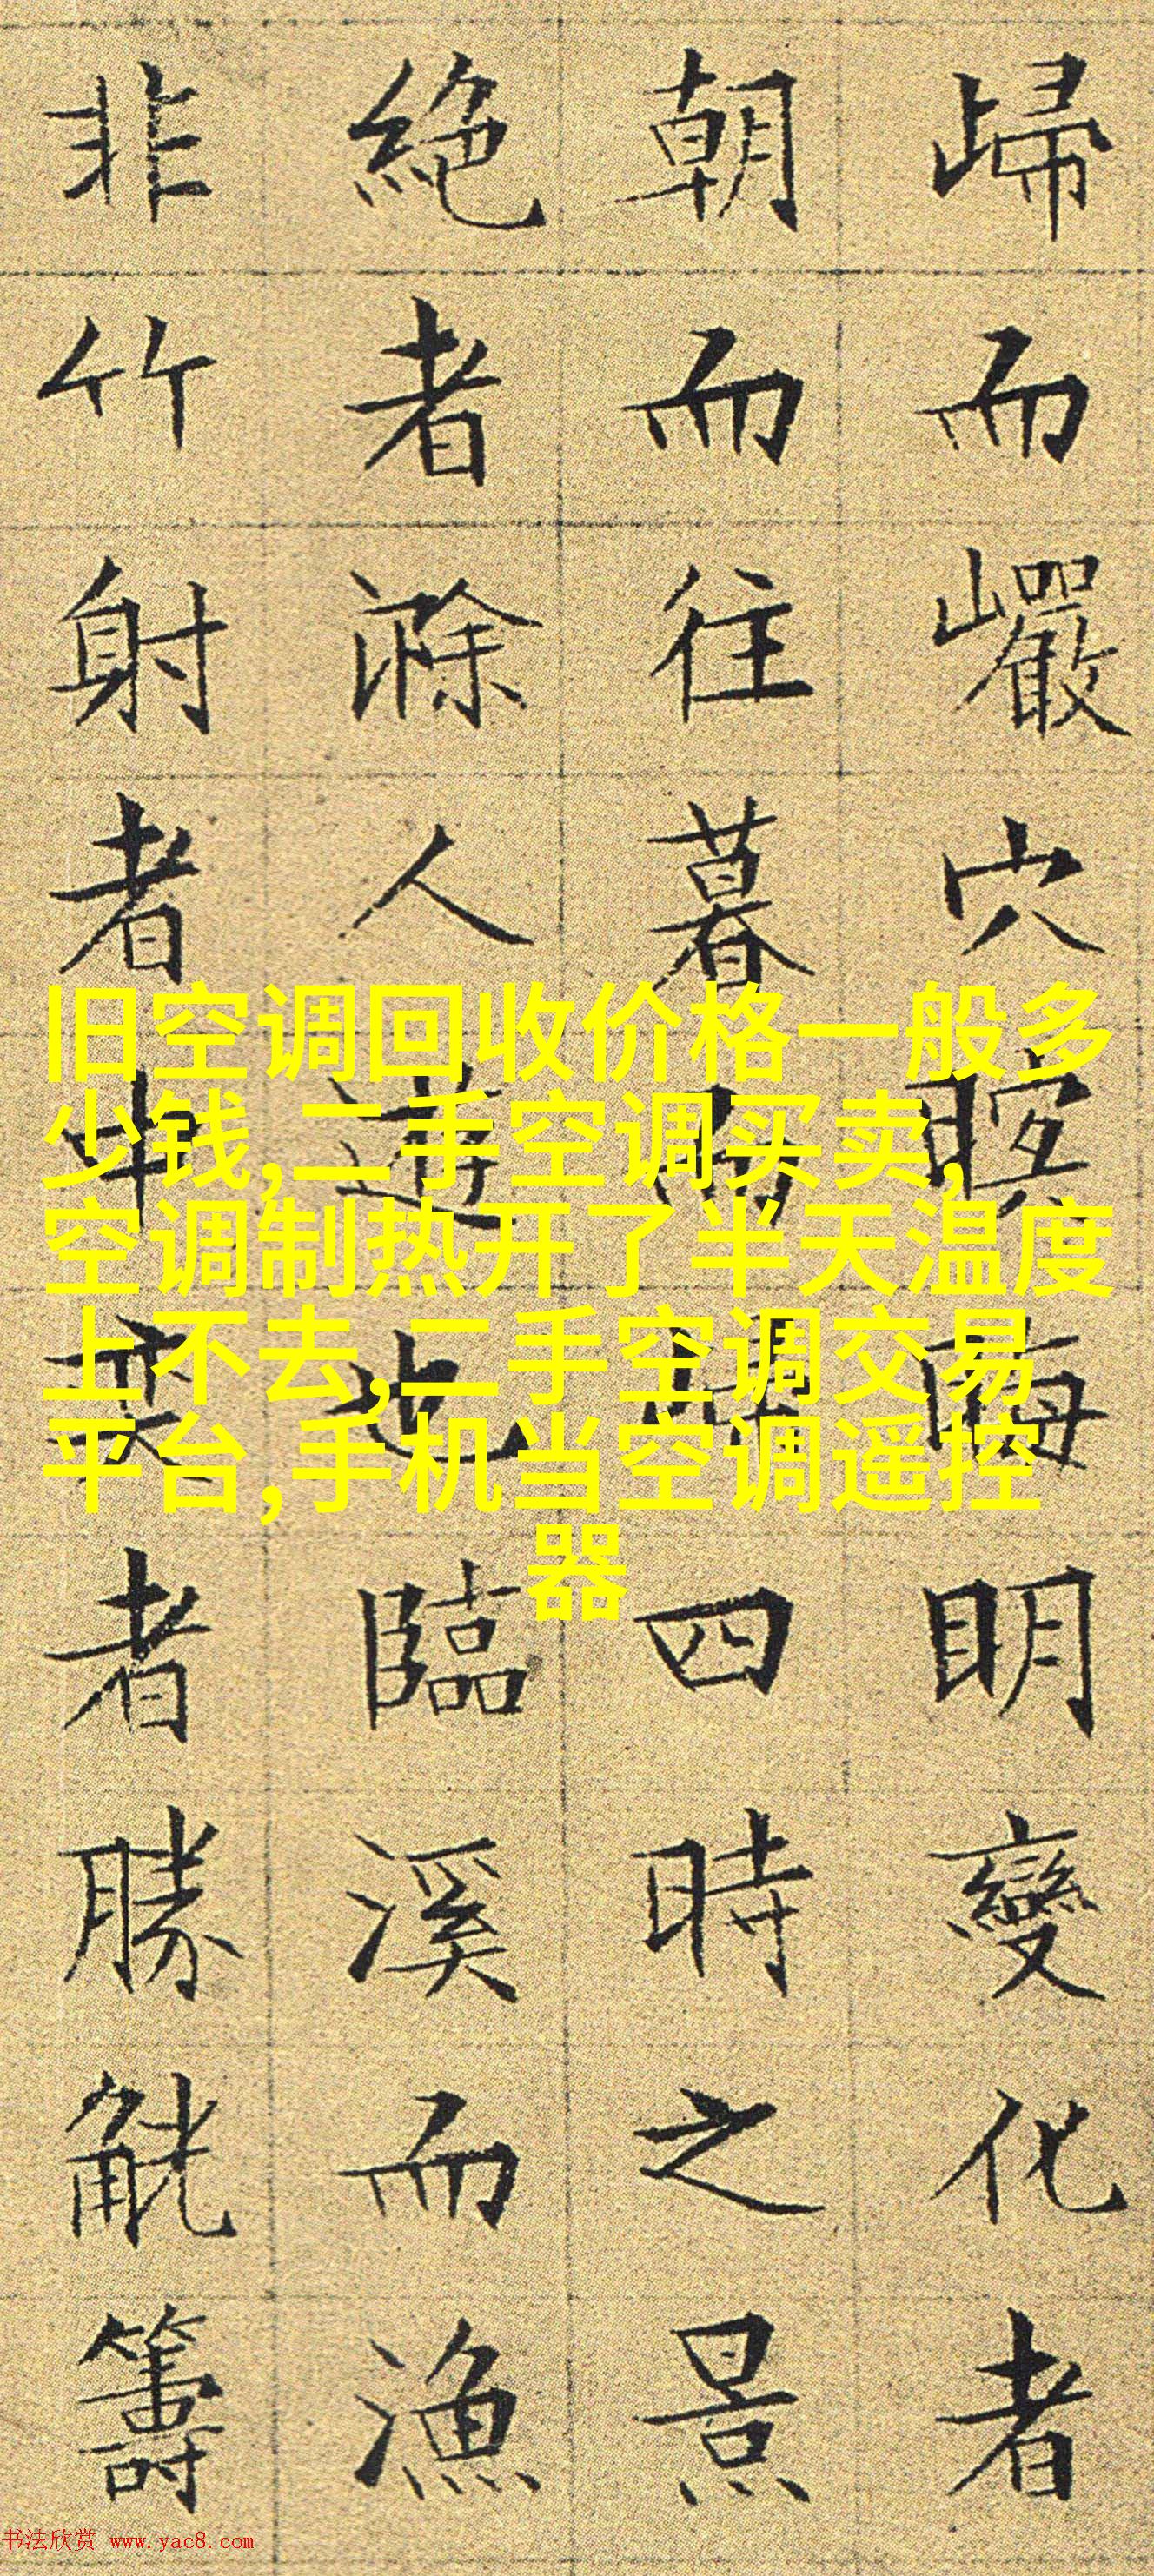 歸而巖穴晦明變化者
朝而往暮而四時之景
絕者滁人遊也臨溪而漁
非竹射者中奕者勝觥籌
旧空调回收价格一般多
少钱,二手空调买卖,
空调制热开了半天温度
上不去,二手空调交易
平台,手机当空调遥控
器
书法欣赏 www.yac8.com